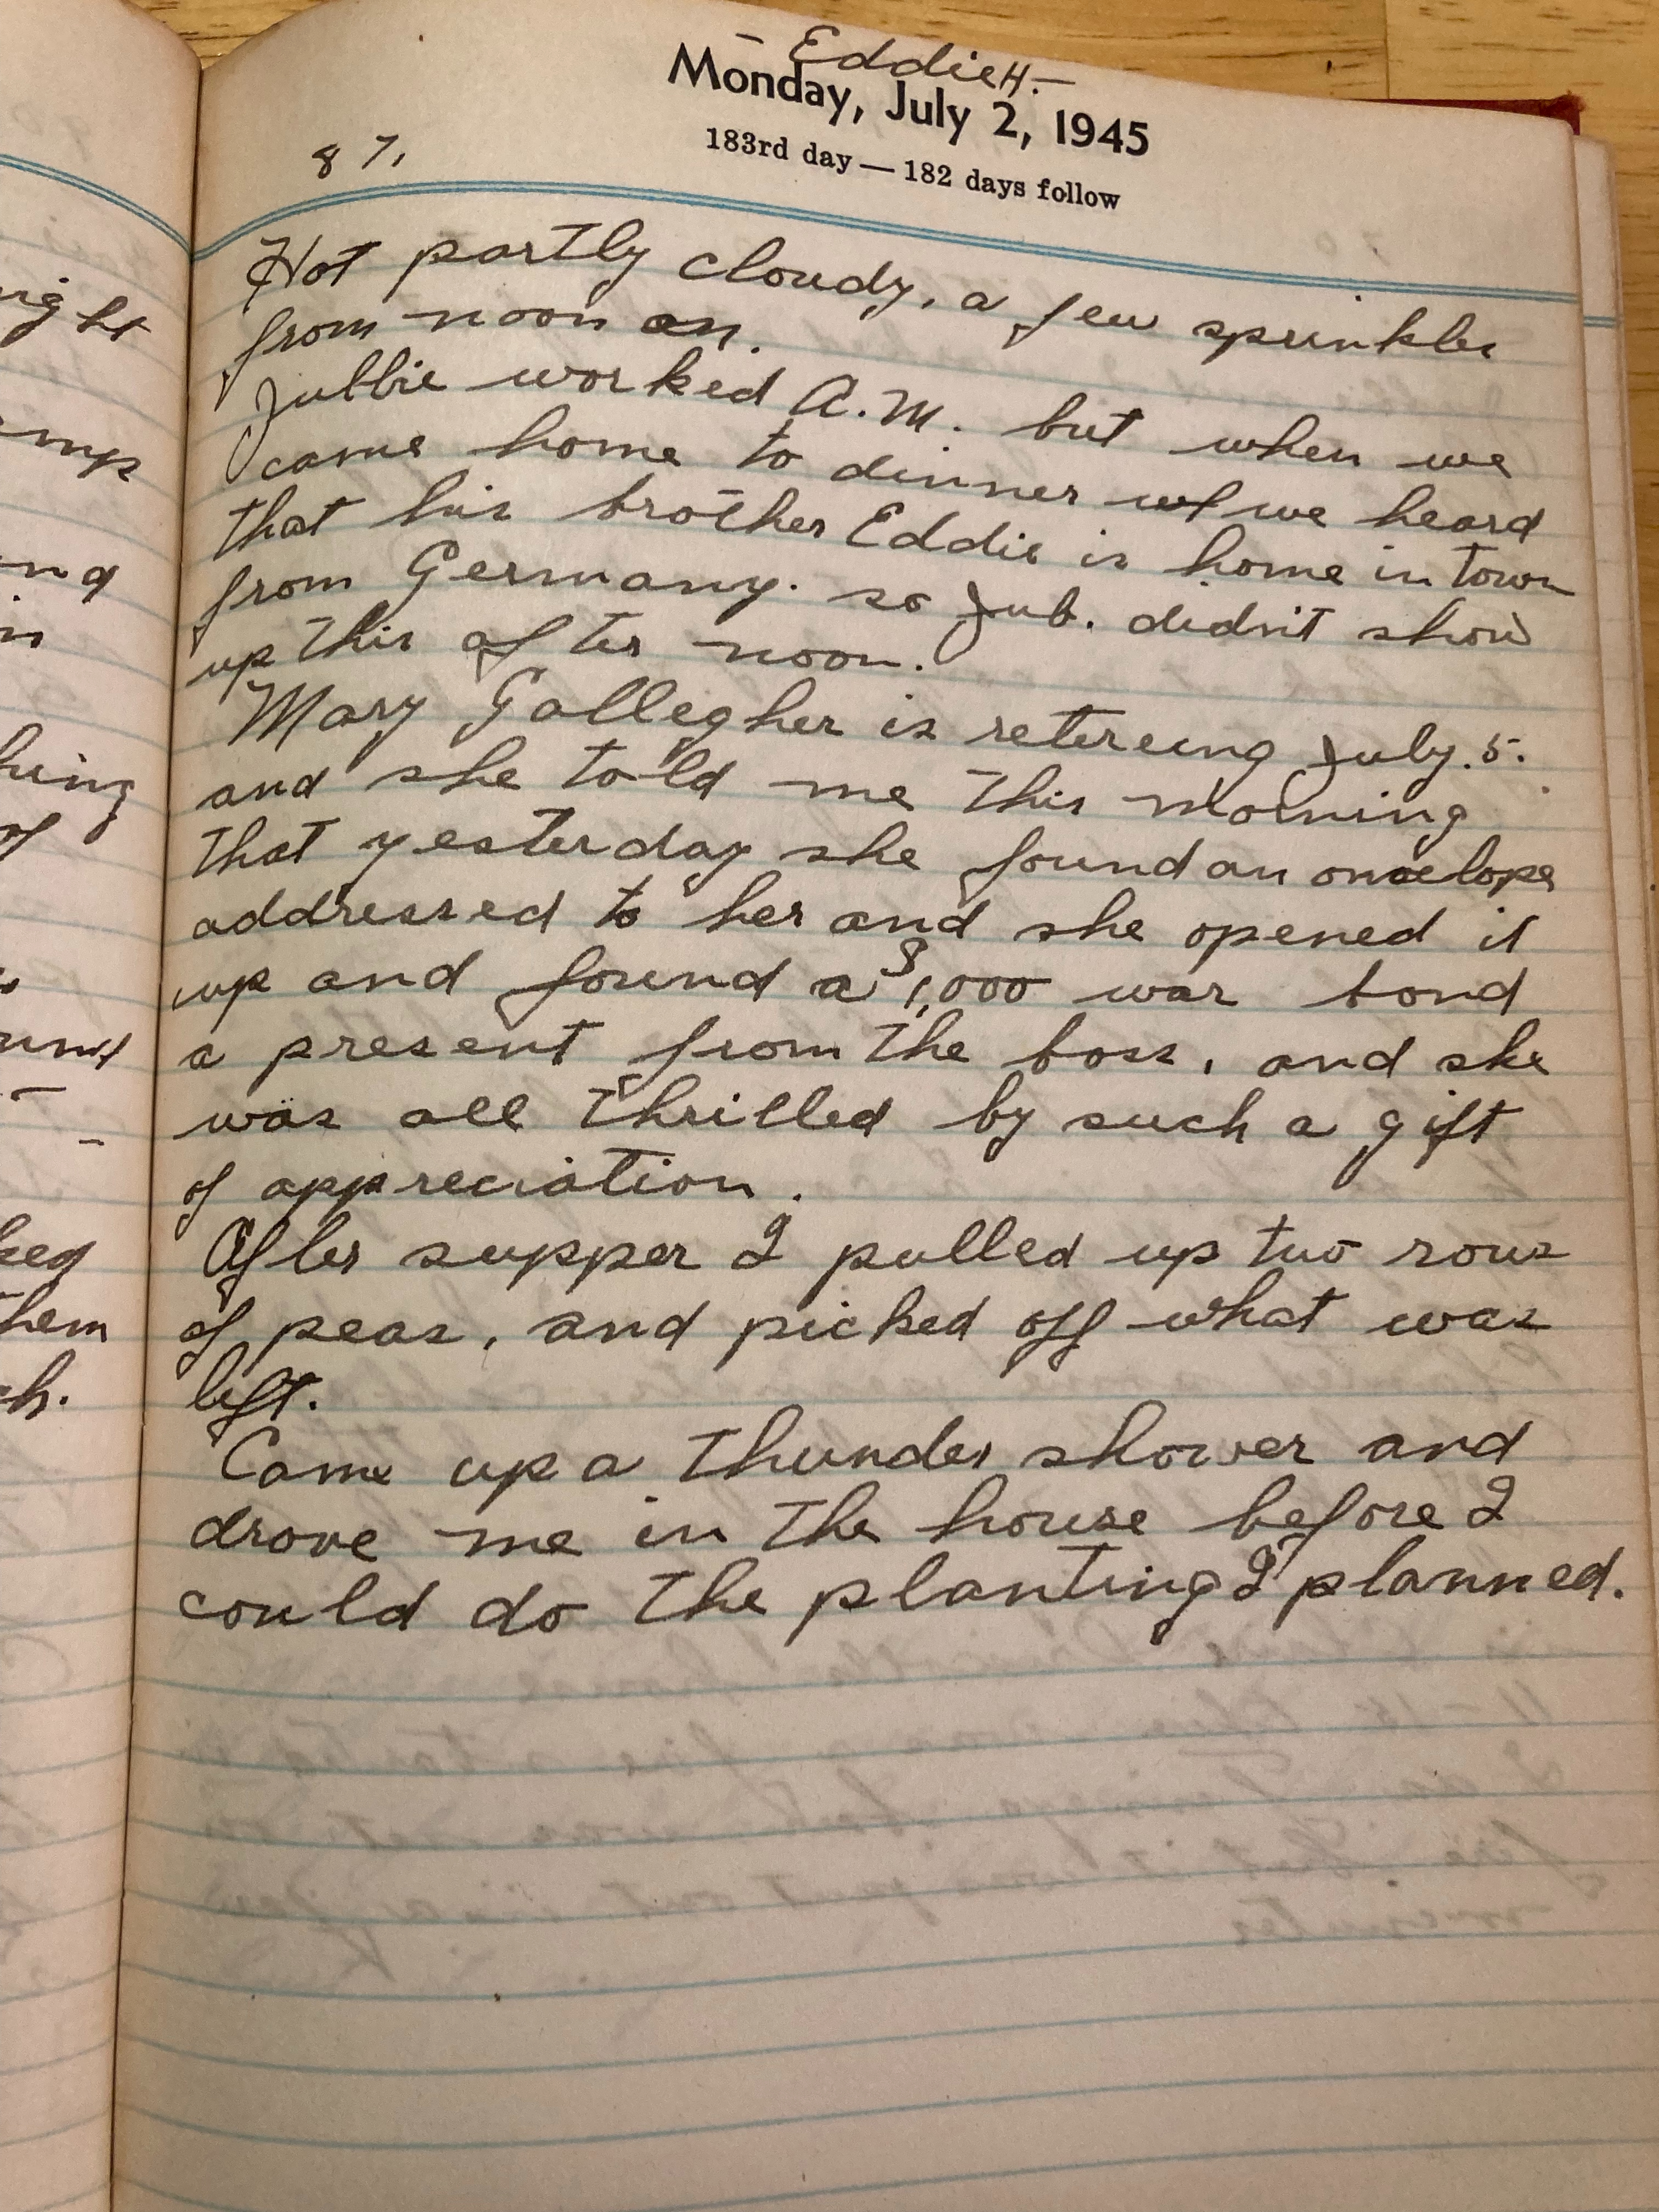 - Eddie H. -
Monday, July 2, 1945
183rd day — 182 days follow
87.
Hot partly cloudy, a few sprinkles
from noon on.
Jubbie worked A.M. but when we
came home to dinner we heard
that his brother Eddie is home in town
from Germany. so Jub. didn't show
up this after noon.
Mary Gallegher is retereing July. 5.
and she told me this morning
that yesterday she found an onvelope
addressed to her and she opened it
up and found a $1,000 war bond
a present from the boss, and she
was all thrilled by such a gift
of appreciation.
After supper I pulled up two rows
of peas, and picked off what was
left.
Came up a thunder shower and
drove me in the house before I
could do the planting I planned.